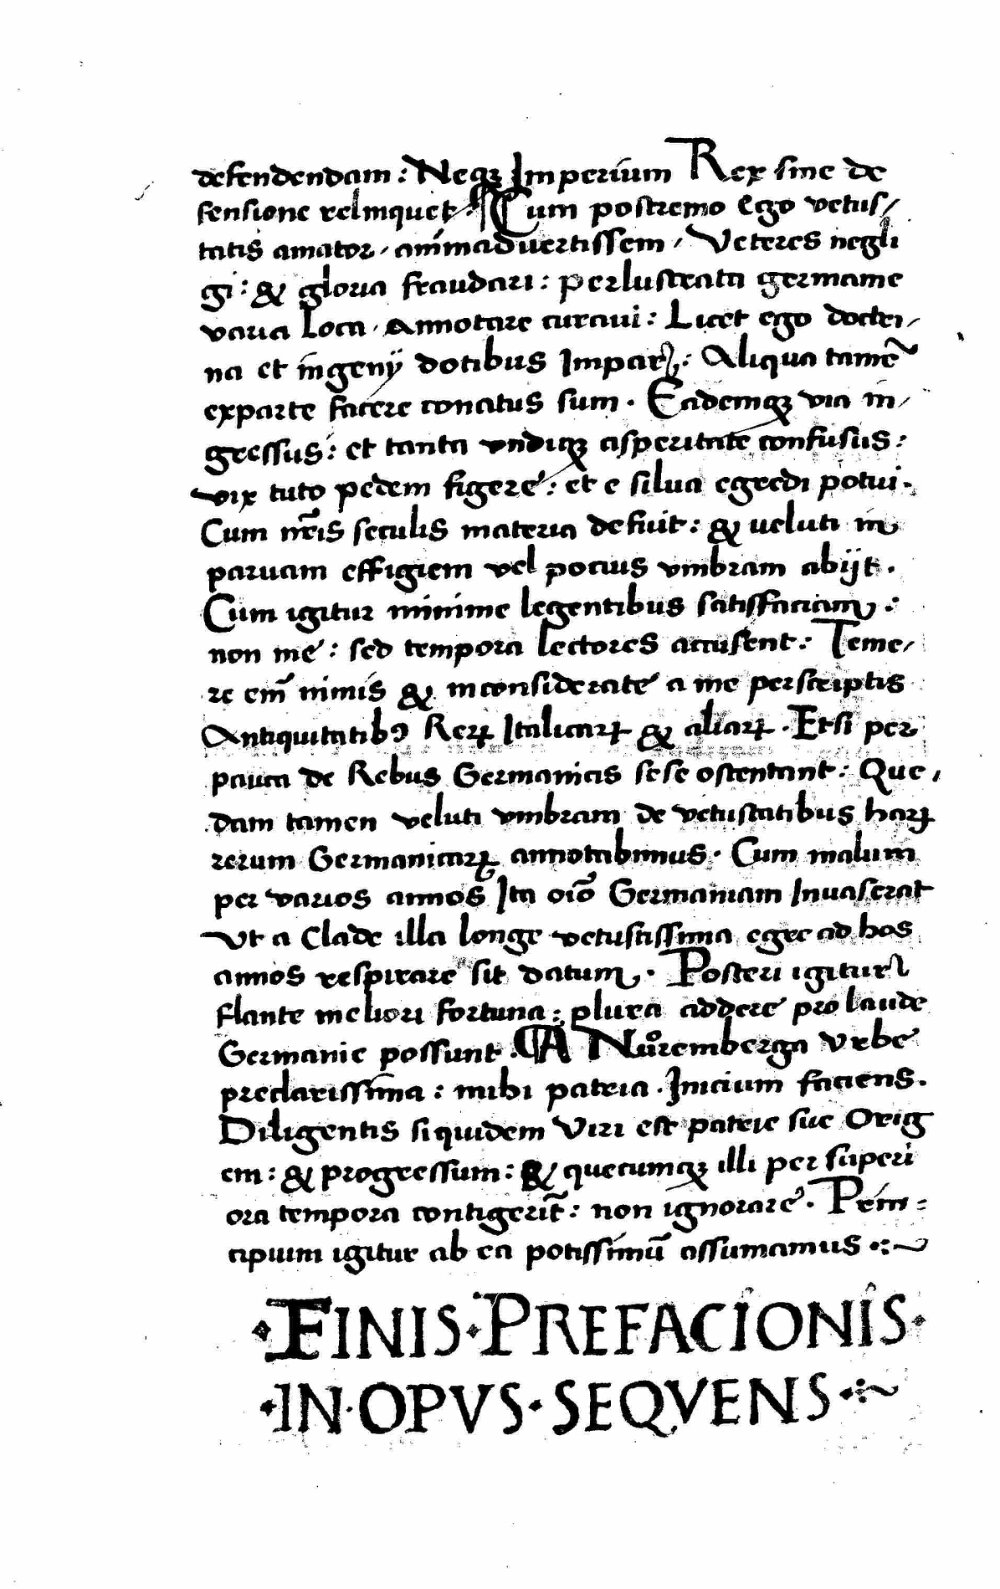 defendendam: Neqꝫ Imperium Rex sine de
fensione relinquet ¶ Cum postremo Ego vetus/
tatis amator, animaduertissem, Veteres negli
gi: & gloria fraudari: perlustrata germanie
varia Loca, Annotare curaui: Licet ego doctri/
na et ingenij dotibus Impar: Aliqua tamē
exparte facere conatus sum. Eademqꝫ via in/
gressus: et tanta vndiqꝫ asperitate confusus:
vix tuto pedem figere: et e silua egredi potui.
Cum nr̄is seculis materia defuit: & veluti in
paruam effigiem vel pocius vmbram abijt.
Cum igitur minime legentibus satisfaciam:
non me: sed tempora lectores accusent: Teme/
re em̄ nimis & inconsiderate a me perscriptis
Antiquitatibꝰ Reꝝ Italicaꝝ & aliaꝝ. Etsi per
pauca de Rebus Germanicis sese ostentant: Que/
dam tamen veluti vmbram de vetustatibus haꝝ
rerum Germanicaꝝ annotabimus. Cum malum
per varios annos Ita oīō Germaniam Inuaserat
Vt a Clade illa longe vetustissima egre ad hos
annos respirare sit datum. Posteri igitur
flante meliori fortuna: plura addere pro laude
Germanie possunt. ¶ A Nůremberga Vrbe
preclarissīma: mihi patria. Inicium faciens.
Diligentis siquidem Viri est patrie sue Orig
em: & progressum: & quecumqꝫ illi per superi
ora tempora contigerīt: non ignorare. Prin=
cipium igitur ab ea potissimū assumamus .:~
·FINIS·PREFACIONIS·
·IN·OPVS·SEQVENS·:~